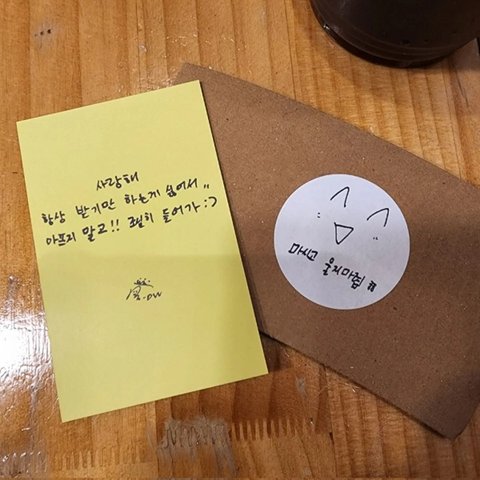 사랑해
항상 받기만 하는게 싫어서,,
아프지 말고!! 조심히 들어가 :)
마시고 울지마렴 #